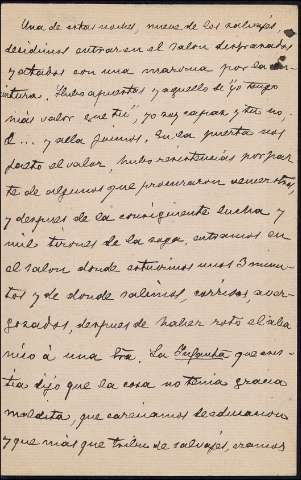 Una de estas noches, nueve de los salvajes,
decidimos entrar en el salon desgranados
y atados con una maroma por la
cintura. Hubo apuestas y aquello de "yo tengo
más valor que tú", yo soy capaz y tu no.
&... y alla fuimos. En la puerta nos
faltó el valor, hubo resistencias por par-
te de algunos que procuraron
y despues de la consiguiente lucha y
mil tirones de la soga, entramos en
el salon donde estuvimos unos 3 minu-
tos y de donde salimos, corridos, aver-
gonzados, despues de haber roto el aba
nico á una Sra. La Infanta que exis-
tia dijo que la cosa no tenia gracia
maldita, que careciamos de educacion
y que más que tribu de salvajes, eramos